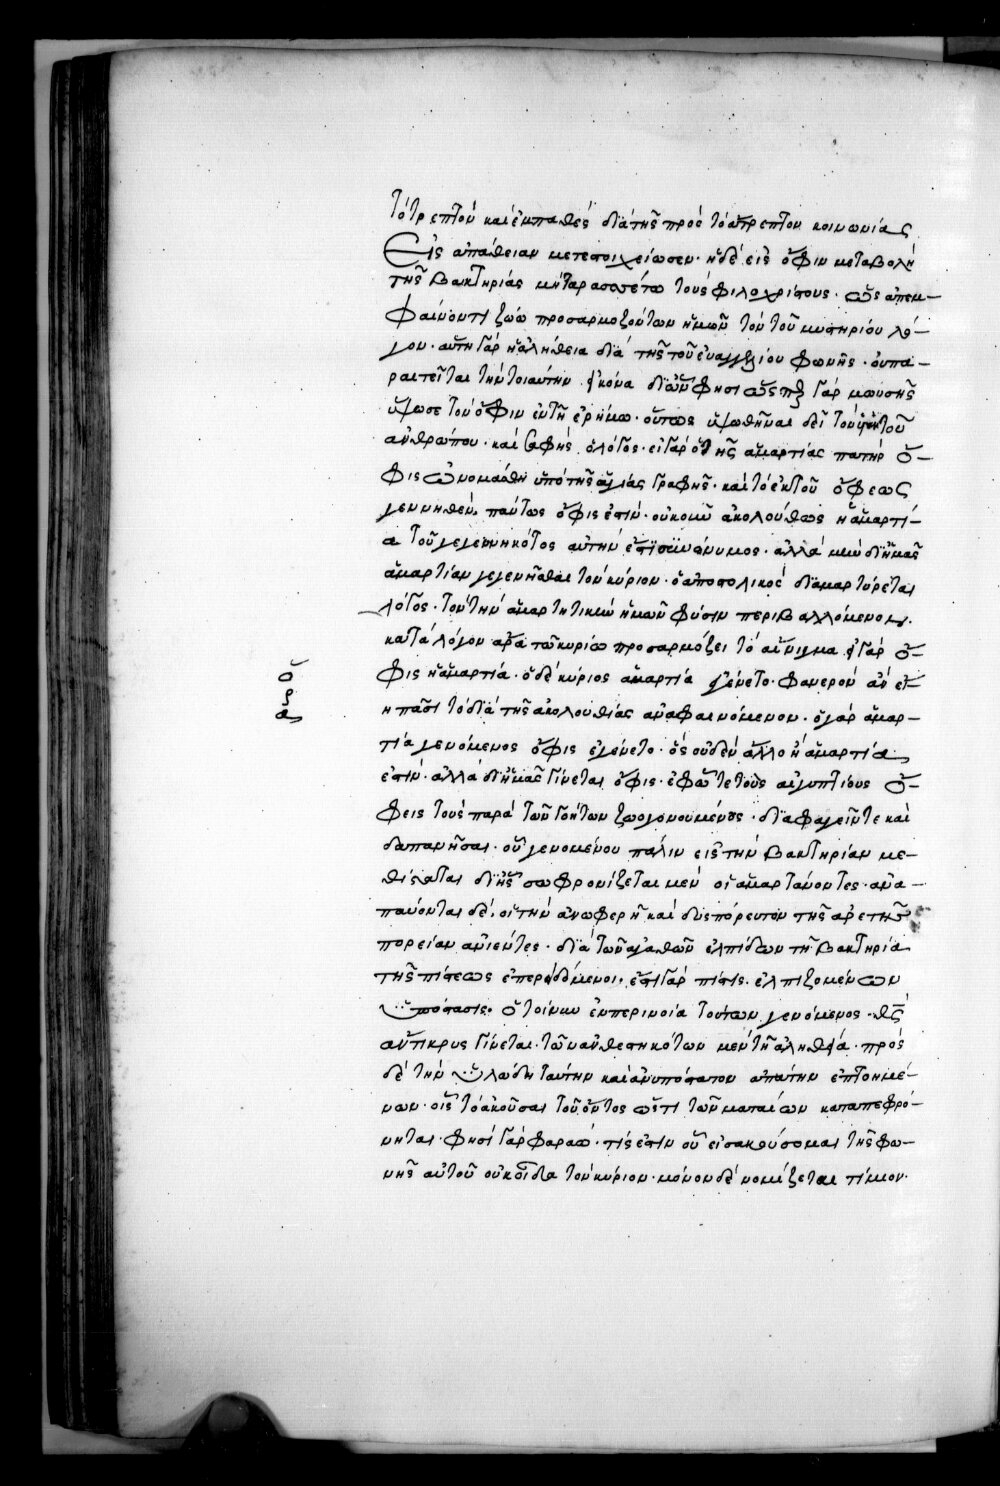 τὸ τρεπτὸν καὶ ἐμπαθὲς διὰ τῆς πρὸς τὸ ἄτρεπτον κοινωνίας
Εἰς ἀπάθειαν μετεστοιχείωσεν· ἡ δὲ εἰς ὄφιν μεταβολὴ
τῆς βακτηρίας μὴ ταρασσέτω τοὺς φιλοχρίστους· ὡς ἀπεμ-
φαίνοντι ζώω προσαρμοζόντων ἡμῶν τὸν τοῦ μυστηρίου λό-
γον· αὐτὴ γὰρ ἡ ἀλήθεια διὰ τῆς τοῦ εὐαγγελίου φωνῆς· οὐ πα-
ραιτεῖται τὴν τοιαύτην εἰκόνα δι' ὧν φησὶ ὥσπερ γὰρ μωυσῆς
ὕψωσε τὸν ὄφιν ἐν τῇ ἐρήμω· οὕτως ὑψωθῆναι δεῖ τὸν υἱὸν τοῦ
ἀνθρώπου· καὶ σαφὴς ὁ λόγος· εἰ γὰρ ὁ τῆς ἁμαρτίας πατὴρ ὄ-
φις ὠνομάσθη ὑπὸ τῆς ἁγίας γραφῆς· καὶ τὸ ἐκ τοῦ ὄφεως
γεννηθὲν, πάντως ὄφις ἐστίν· οὐκοῦν ἀκολούθως ἡ ἁμαρτί-
α τοῦ γεγεννηκότος αὐτὴν ἐστὶ συνώνυμος· ἀλλὰ μὴν δι' ἡμᾶς
ἁμαρτίαν γεγενῆσθαι τὸν κύριον· ὁ ἀποστολικὸς διαμαρτύρεται
λόγος· τὸν τὴν ἁμαρτητικὴν ἡμῶν φύσιν περιβαλλόμενον.
κατὰ λόγον ἄρα τῶ κυρίω προσαρμόζει τὸ αἴνιγμα εἰ γὰρ ὄ-
φις ἡ ἁμαρτία· ὁ δὲ κύριος ἁμαρτία ἐγένετο· φανερὸν ἂν εἴ-
η πᾶσι τὸ διὰ τῆς ἀκολουθίας ἀναφαινόμενον· ὁ γὰρ ἁμαρ-
τία γενόμενος ὄφις ἐγένετο· ὃς οὐδὲν ἄλλο ἢ ἁμαρτία
ἐστίν· ἀλλὰ δι' ἡμᾶς γίνεται ὄφις· ἐφ' ᾧ τε τοὺς αἰγυπτίους ὄ-
φεις τοὺς παρὰ τῶν γοήτων ζωογονουμένους· διαφαγεῖν τε καὶ
δαπανῆσαι· οὗ γενομένου πάλιν εἰς τὴν βακτηρίαν με-
θίσταται δι' ἧς σωφρονίζεται μὲν οἱ ἁμαρτάνοντες· ἀνα-
παύονται δὲ, οἱ τὴν ἀνωφερῆ καὶ δυσπόρευτον τῆς ἀρετῆς
πορείαν ἀνιέντες· διὰ τῶν ἀγαθῶν ἐλπίδων τῇ βακτηρία
τῆς πίστεως ἐπερειδόμενοι, ἔστι γὰρ πίστις. ἐλπιζομένων
ὑπόστασις. ὁ τοίνυν ἐν περινοία τούτων γενόμενος· θς
ἄντικρυς γίνεται· τῶν ἀνθεστηκότων μὲν τῇ ἀληθεία· πρὸς
δὲ τὴν ὑλώδη ταύτην καὶ ἀνυπόστατον ἀπάτην ἐπτοημέ-
νων· οἷς τὸ ἀκοῦσαι τοῦ ὄντος ὥς τι τῶν ματαίων καταπεφρό-
νηται· φησὶ γὰρ φαραὼ· τίς ἐστιν οὗ εἰσακούσομαι τῆς φω-
νῆς αὐτοῦ οὐκ οἶδα τὸν κύριον· μόνον δὲ νομίζεται τίμιον·
ὅ
ρ
α